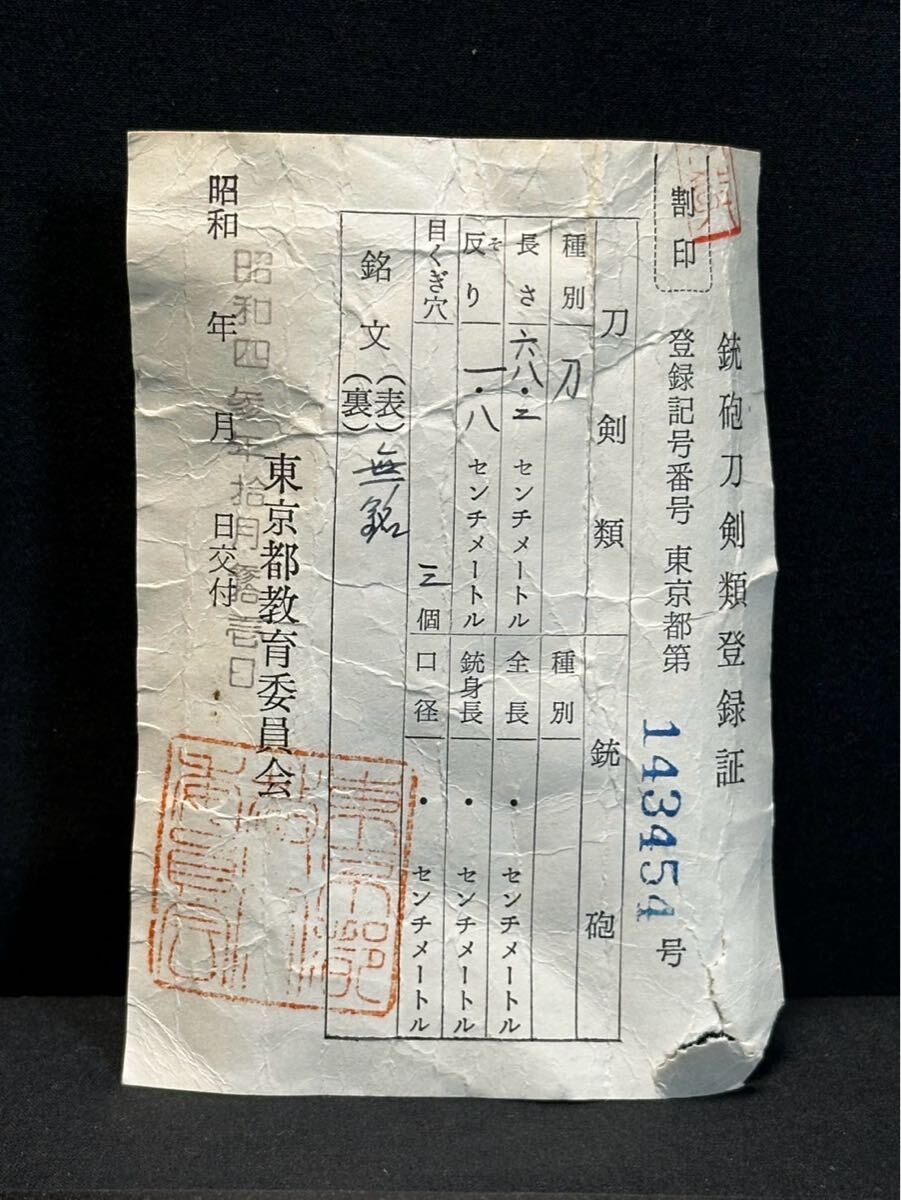 銃砲刀剣類登録証
割印
登録記号番号 東京都第 143454 号
刀剣類
種別 刀
長さ 六八・二 センチメートル
反り そ 一・八 センチメートル
目くぎ穴 三 個
銃砲
種別
全長 ・ センチメートル
銃身長 ・ センチメートル
口径 ・ センチメートル
銘文 (表) 無銘
(裏)
東京都教育委員会
昭和 年 月 日交付
昭和四参年拾月参拾壱日